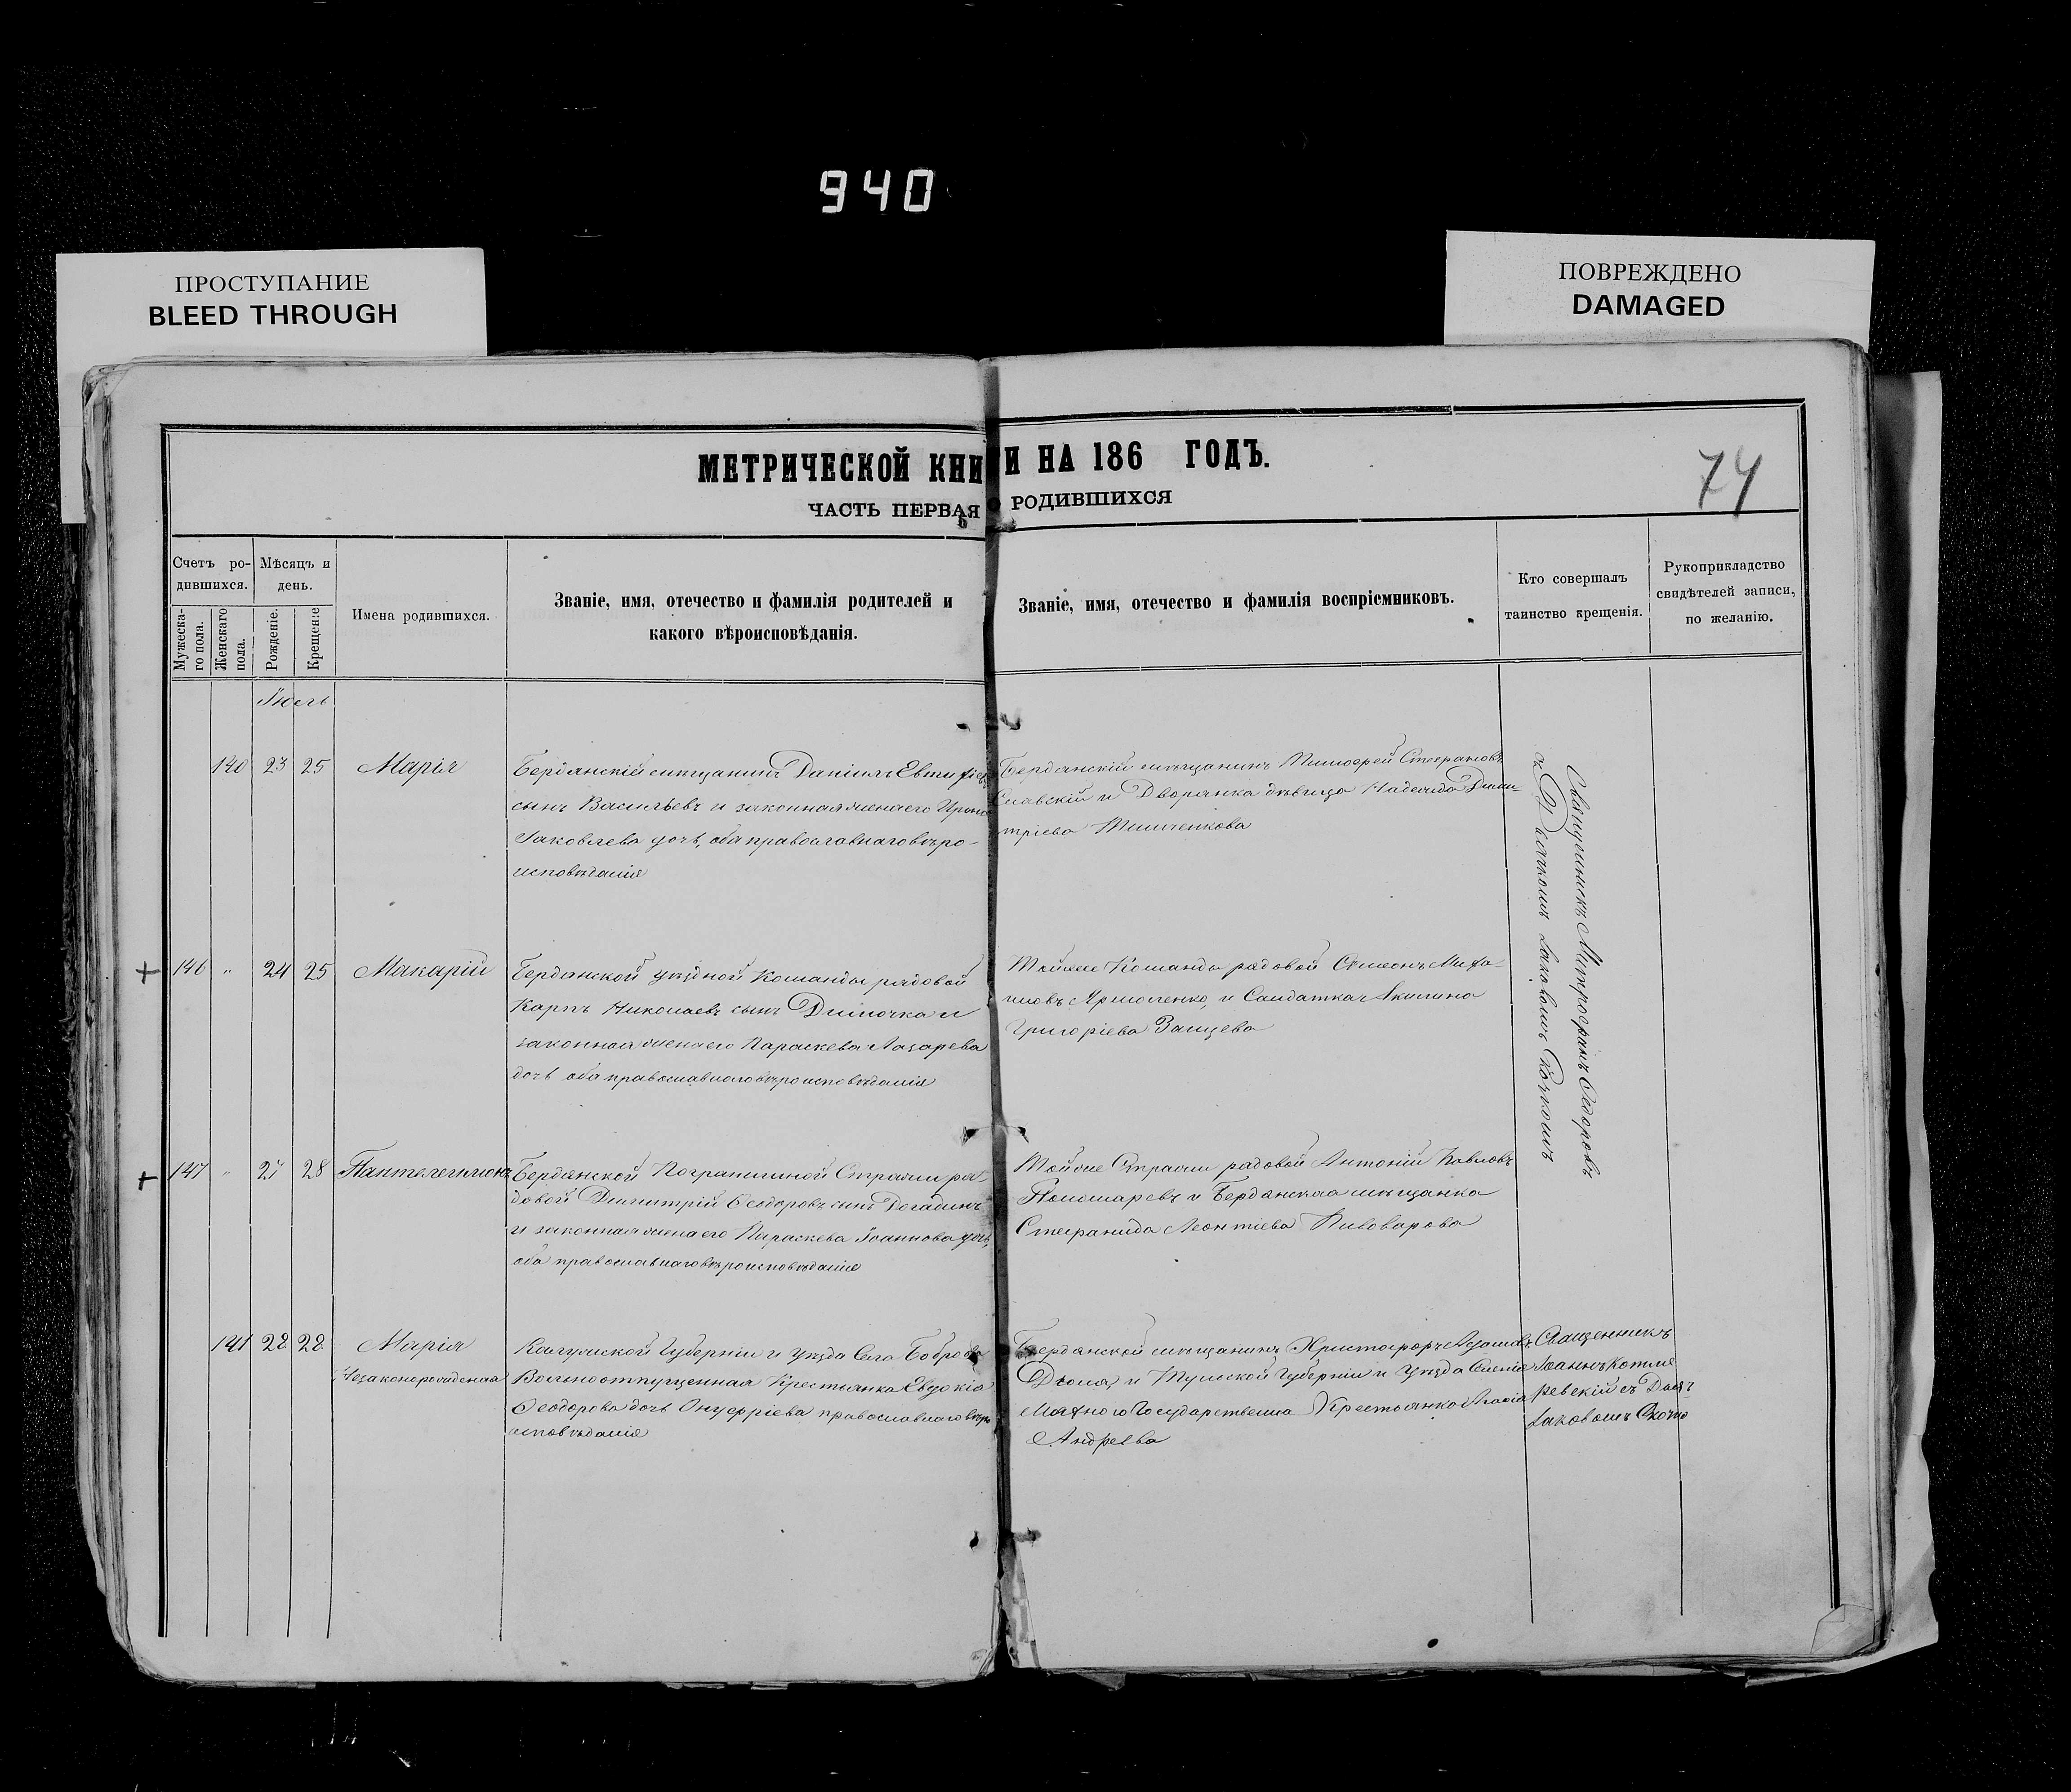 940
ПРОСТУПАНИЕ
BLEED THROUGH
ПОВРЕЖДЕНО
DAMAGED
МЕТРИЧЕСКОЙ КНИ И НА 186 ГОДЪ.
74
ЧАСТЬ ПЕРВАЯ РОДИВШИХСЯ
Счетъ ро-
дившихся.
Мужеска-
го пола.
Женскаго
пола.
Мѣсяцъ и
день.
Рожденіе.
Крещеніе
Имена родившихся.
Званіе, имя, отечество и фамилія родителей и
какого вѣроисповѣданія.
Званіе, имя, отечество и фамилія воспріемниковъ.
Кто совершалъ
таинство крещенія.
Рукоприкладство
свидѣтелей записи,
по желанію.
Іюль
140 23 25 Марія
Бердянскій мѣщанинъ Даніилъ
сынъ Васильевъ и законная жена его
Іаковлева дочь, оба православнаго вѣро-
исповѣданія
Бердянскій мѣщанинъ Стефановъ
и Дворянка дѣвица Надежда Дими-
тріева
146 " 24 25 Макарій
Бердянской уѣздной Команды рядовой
Карпъ Николаевъ сынъ и
законная жена его Параскева Лазарева
дочь оба православнаго вѣроисповѣданія
Тойже Команды рядовой Симеонъ Миха-
иловъ Ярмоленко, и Солдатка Акилина
Григоріева Заицева
147 " 27 28 Пантелеимонъ
Бердянской Пограничной Стражи ря-
довой Димитрій Ѳеодоровъ сынъ Догадинъ
и законная жена его Параскева Іоаннова дочь,
оба православнаго вѣроисповѣданія
Тойже Стражи рядовой Антоній Павловъ
Пономаревъ и Бердянская мѣщанка
Стефанида Леонтіева Пивоварова
Священникъ Митрофанъ Ѳедоровъ
съ Дьячкомъ Іаковомъ
141 28 28 Марія
Незаконорожденная
Калужской Губерніи и Уѣзда Села
Вольноотпущенная Крестьянка Евдокія
Ѳеодорова дочь Онуфріева православнаго вѣро
исповѣданія
Бердянской мѣщанинъ Христофоръ
и Тульской Губерніи и Уѣзда
Государственна Крестьянка
Андреева
Священникъ
Іоаннъ Котля
ревскій съ Дьяч
Іаковомъ